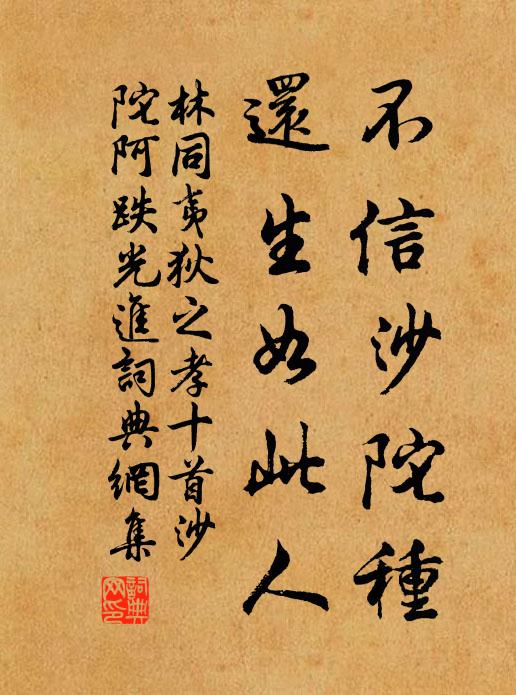 不信沙陀種
還生如此人
林同夷狄之孝十首沙
陀阿跌光進詞典網集
詞典網印